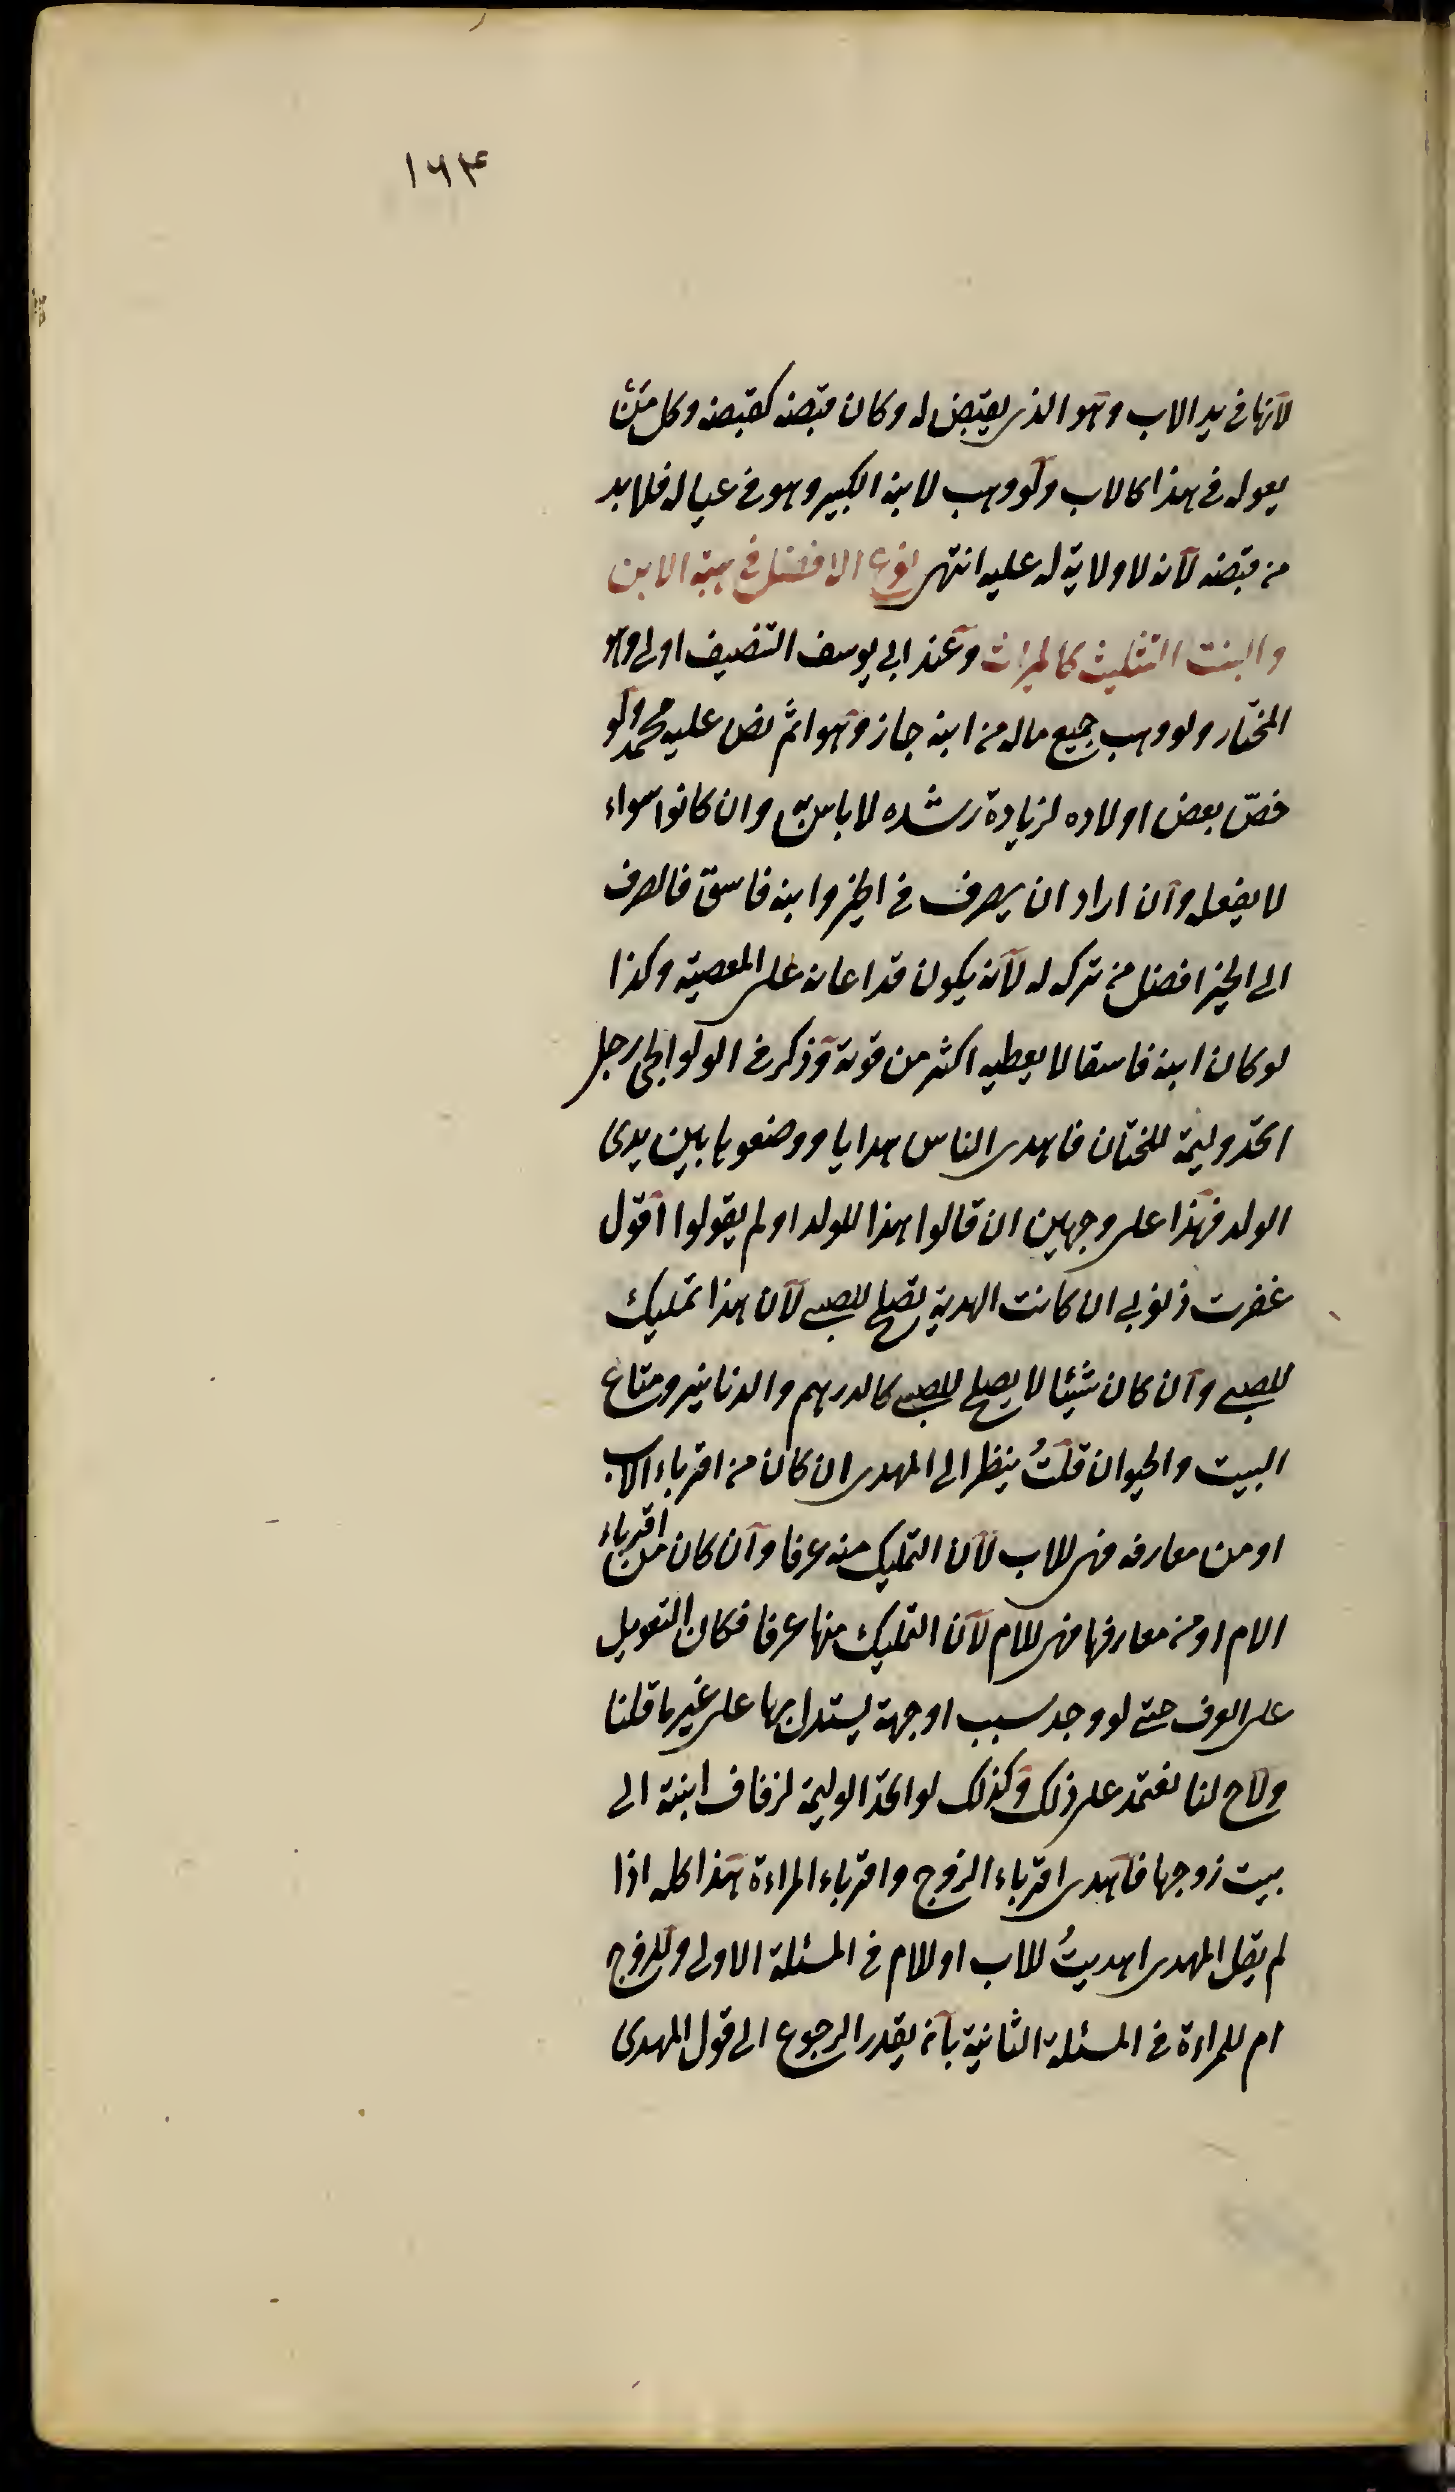 ١٦٣
لانها فى يد الاب وهو الذى يقبض له وكان قبضه كقبضه وكل من
يعوله فى هذا كالاب ولو وهب لابنه الكبير وهو فى عياله فلا بد
من قبضه لانه لا ولاية له عليه انتهى نوع الافضل فى هبة الابن
والبنت التثليث كالميراث وعند ابى يوسف التنصيف اولى وهو
المختار ولو وهب جميع ماله من ابنه جاز وهو اثم نص عليه محمد ولو
خص بعض اولاده لزيادة رشده لا باس به وان كانوا سواء
لا يفعل وان اراد ان يصرف فى الخير وابنه فاسق فالصرف
الى الخير افضل من تركه له لانه يكون قد اعانه على المعصية وكذا
لو كان ابنه فاسقا لا يعطيه اكثر من قوته وذكر فى الولوالجى رجل
اتخذ وليمة للختان فاهدى الناس هدايا ووضعوها بين يدى
الولد فهذا على وجهين ان قالوا هذا للولد او لم يقولوا اقول
غفرت ذنوبى ان كانت الهدية تصلح للصبى لان هذا تمليك
للصبى وان كان شيئا لا يصلح للصبى كالدرهم والدنانير ومتاع
البيت والحيوان قلتُ ينظر الى المهدى ان كان من اقرباء الاب
او من معارفه فهى للاب لان التمليك منه عرفا وان كان من اقرباء
الام او من معارفها فهى للام لان التمليك منها عرفا فكان التعويل
على العرف حتى لو وجد سبب او جهة يستدل بها على غير ما قلنا
ولاح لنا نعتمد على ذلك وكذلك لو اتخذ الوليمة لزفاف ابنته الى
بيت زوجها فاهدى اقرباء الزوج واقرباء المراءة هذا كله اذا
لم يقل المهدى اهديتُ للاب او للام فى المسئلة الاولى وللزوج
ام للمراءة فى المسئلة الثانية بانه يقدر الرجوع الى قول المهدى